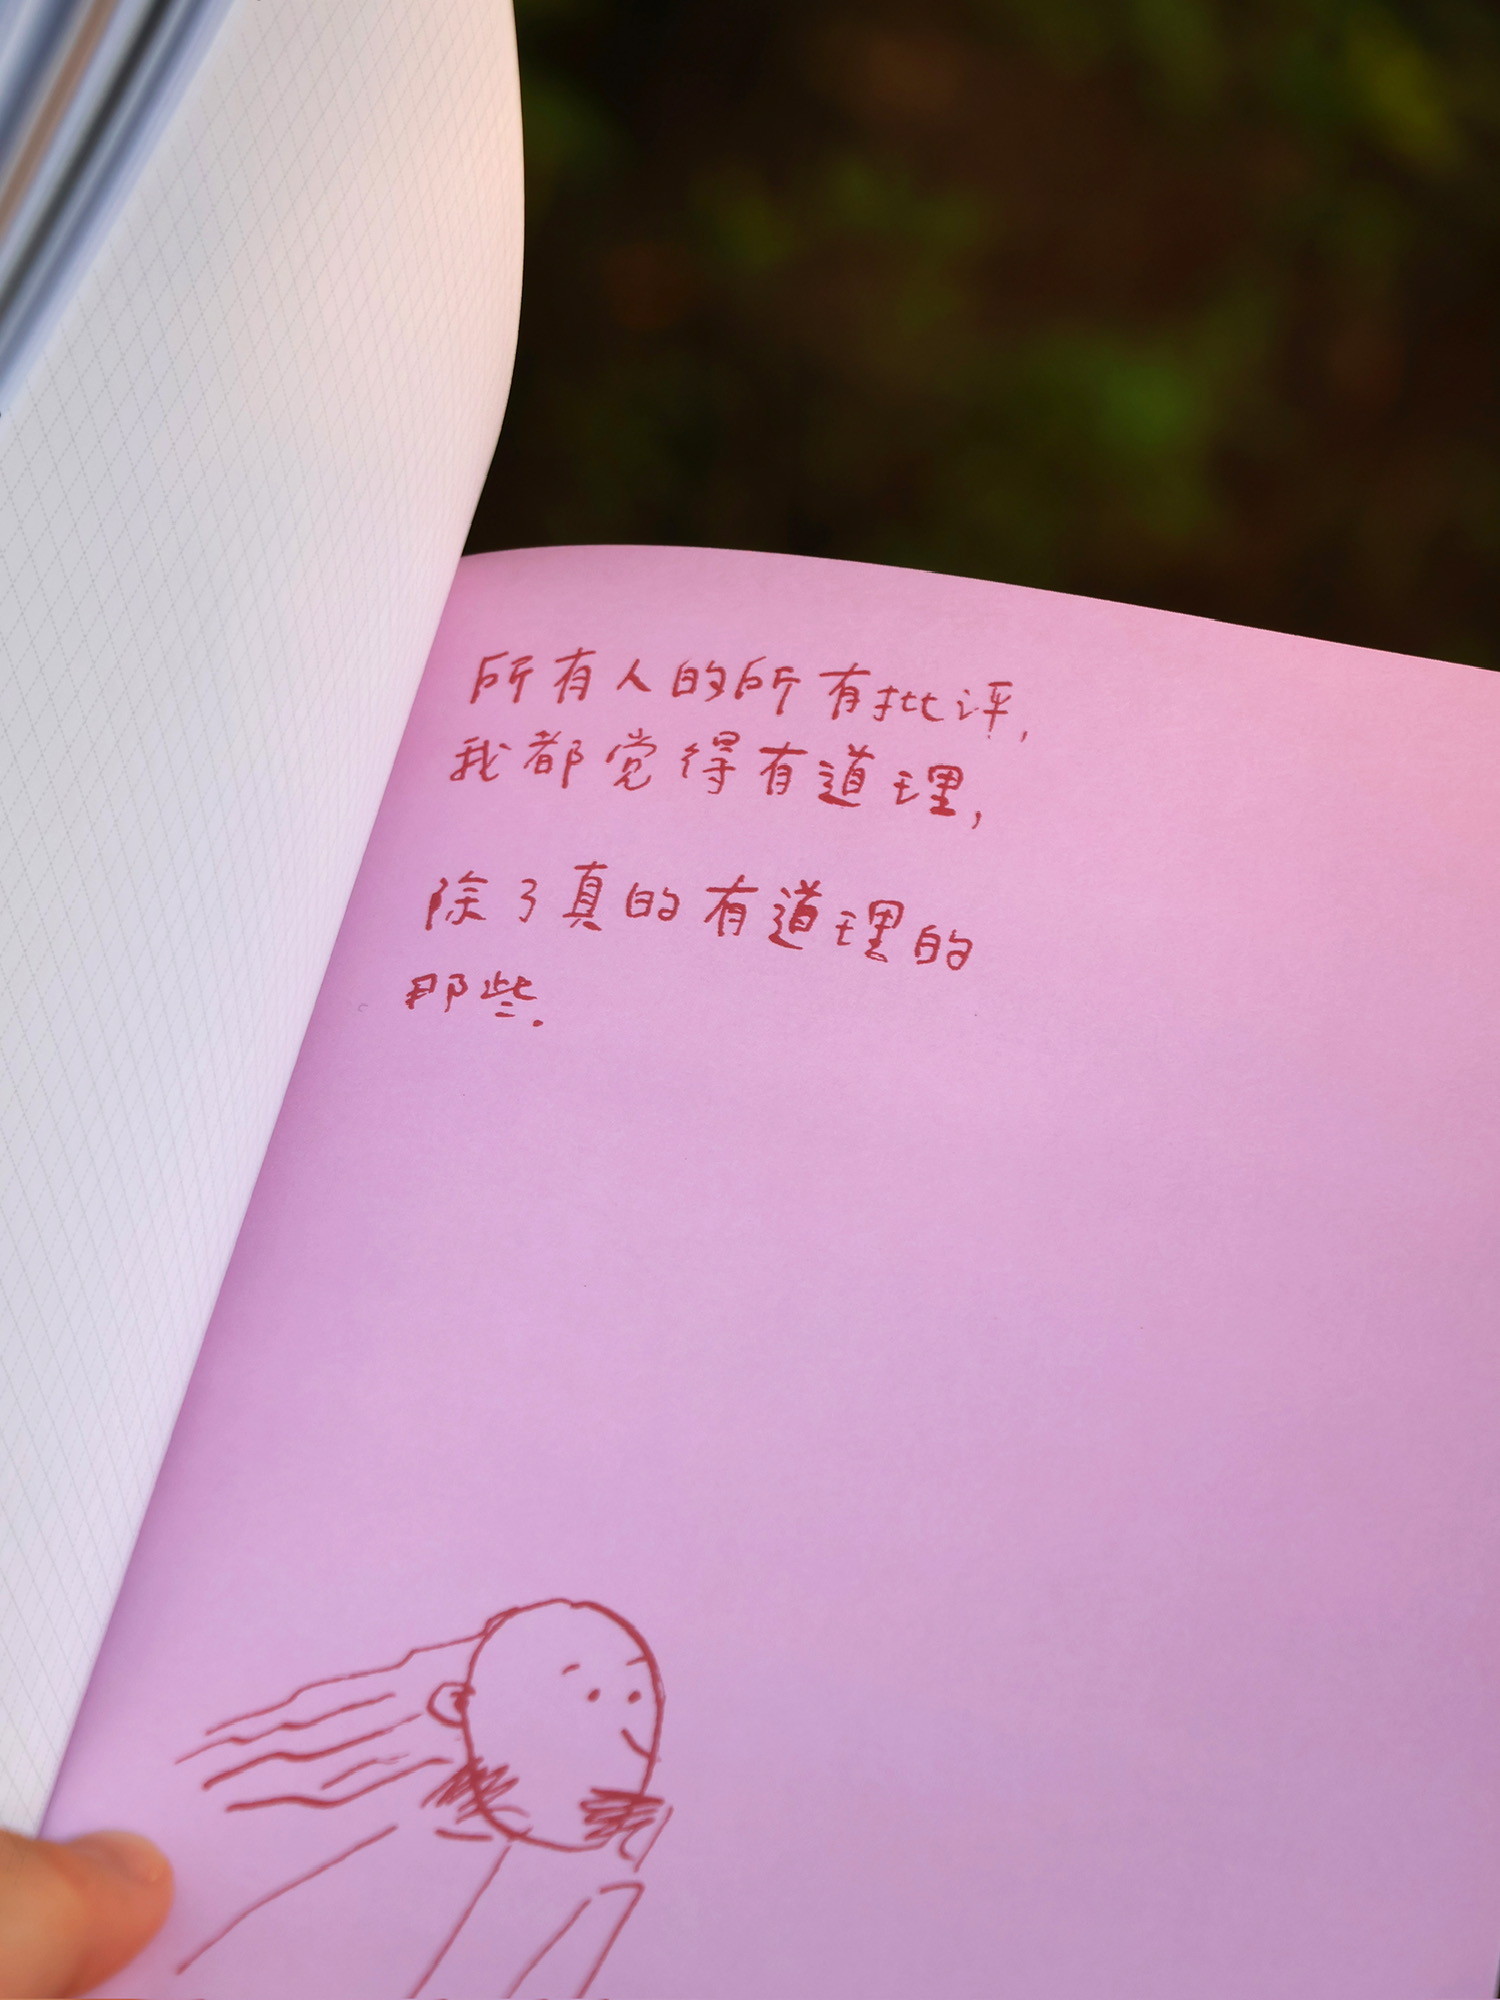 所有人的所有批评,
我都觉得有道理,
除了真的有道理的
那些.